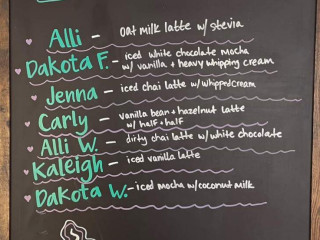 Alli - oat milk latte w/ stevia
Dakota F. - iced white chocolate mocha
w/ vanilla + heavy whipping cream
Jenna - iced chai latte w/ whipped cream
Carly - vanilla bean + hazelnut latte
w/ half + half
Alli W. - dirty chai latte w/ white chocolate
Kaleigh - iced vanilla latte
Dakota W. - iced mocha w/ coconut milk